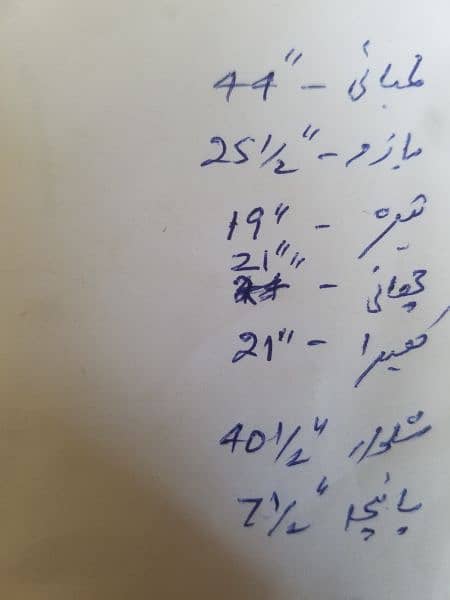 لمبائی – 44"
بازو – 25 1/2"
تیرہ – 19"
چھاتی – 21"
گھیرا – 21"
شلوار 40 1/2"
پانچہ 7 1/2"